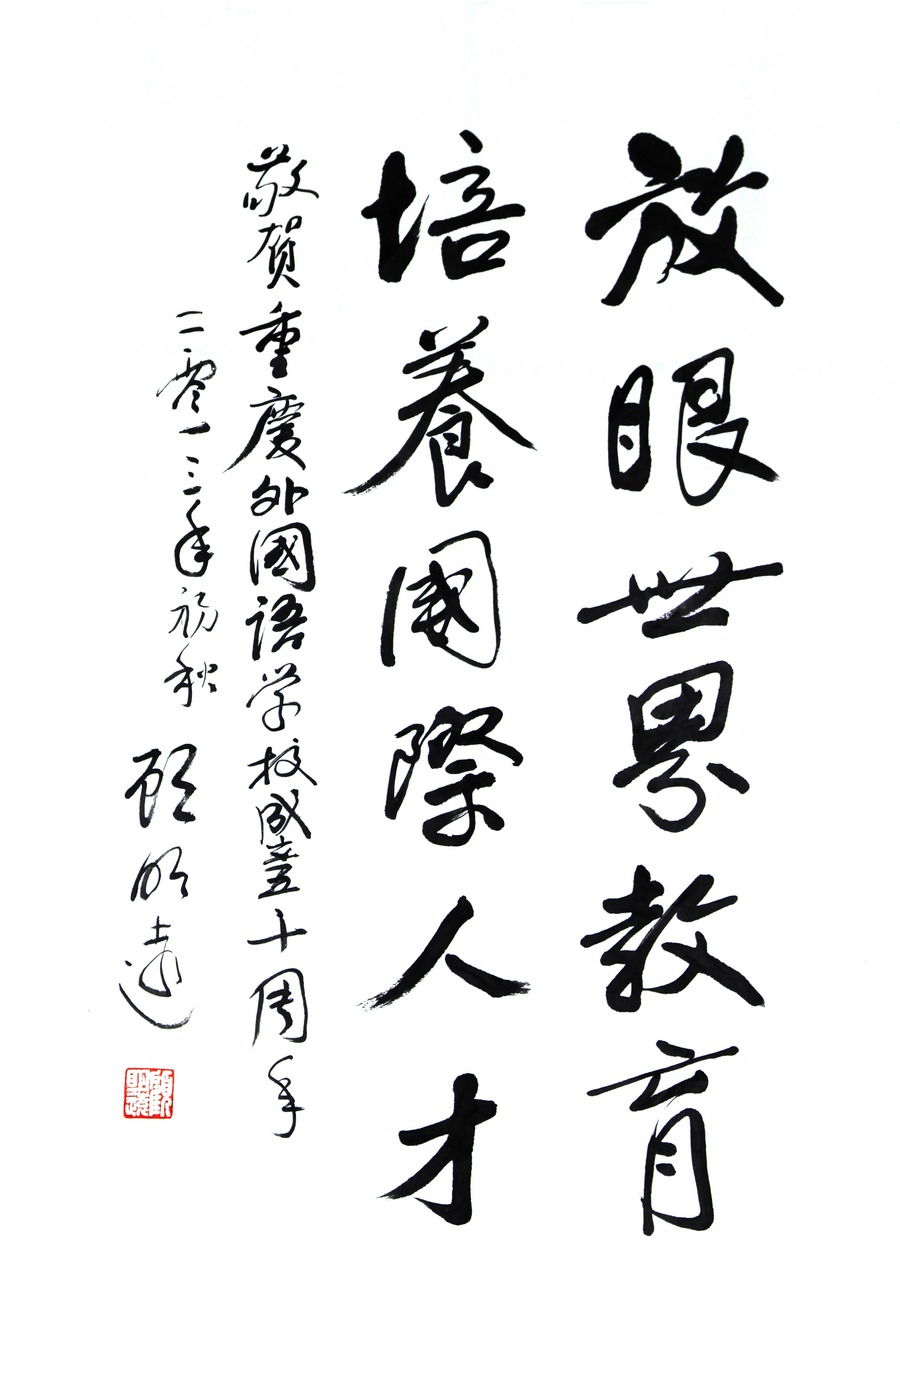 放眼世界教育
培養國際人才
敬賀重慶外國語学校成立五十周年
二零一三年初秋
顾明遠
顧明遠